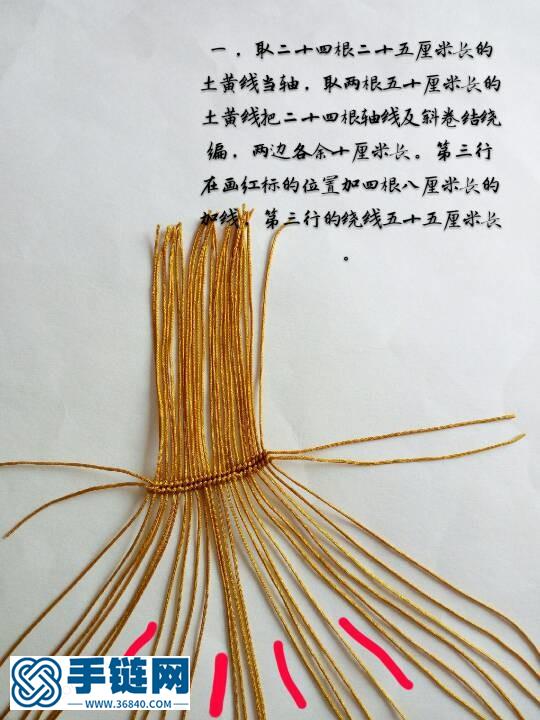 一，取二十四根二十五厘米长的
土黄线当轴，取两根五十厘米长的
土黄线把二十四根轴线及斜卷结绕
编，两边各余十厘米长。第三行
在画红标的位置加四根八厘米长的
加线，第三行的绕线五十五厘米长
。
手链网
WWW.36840.COM